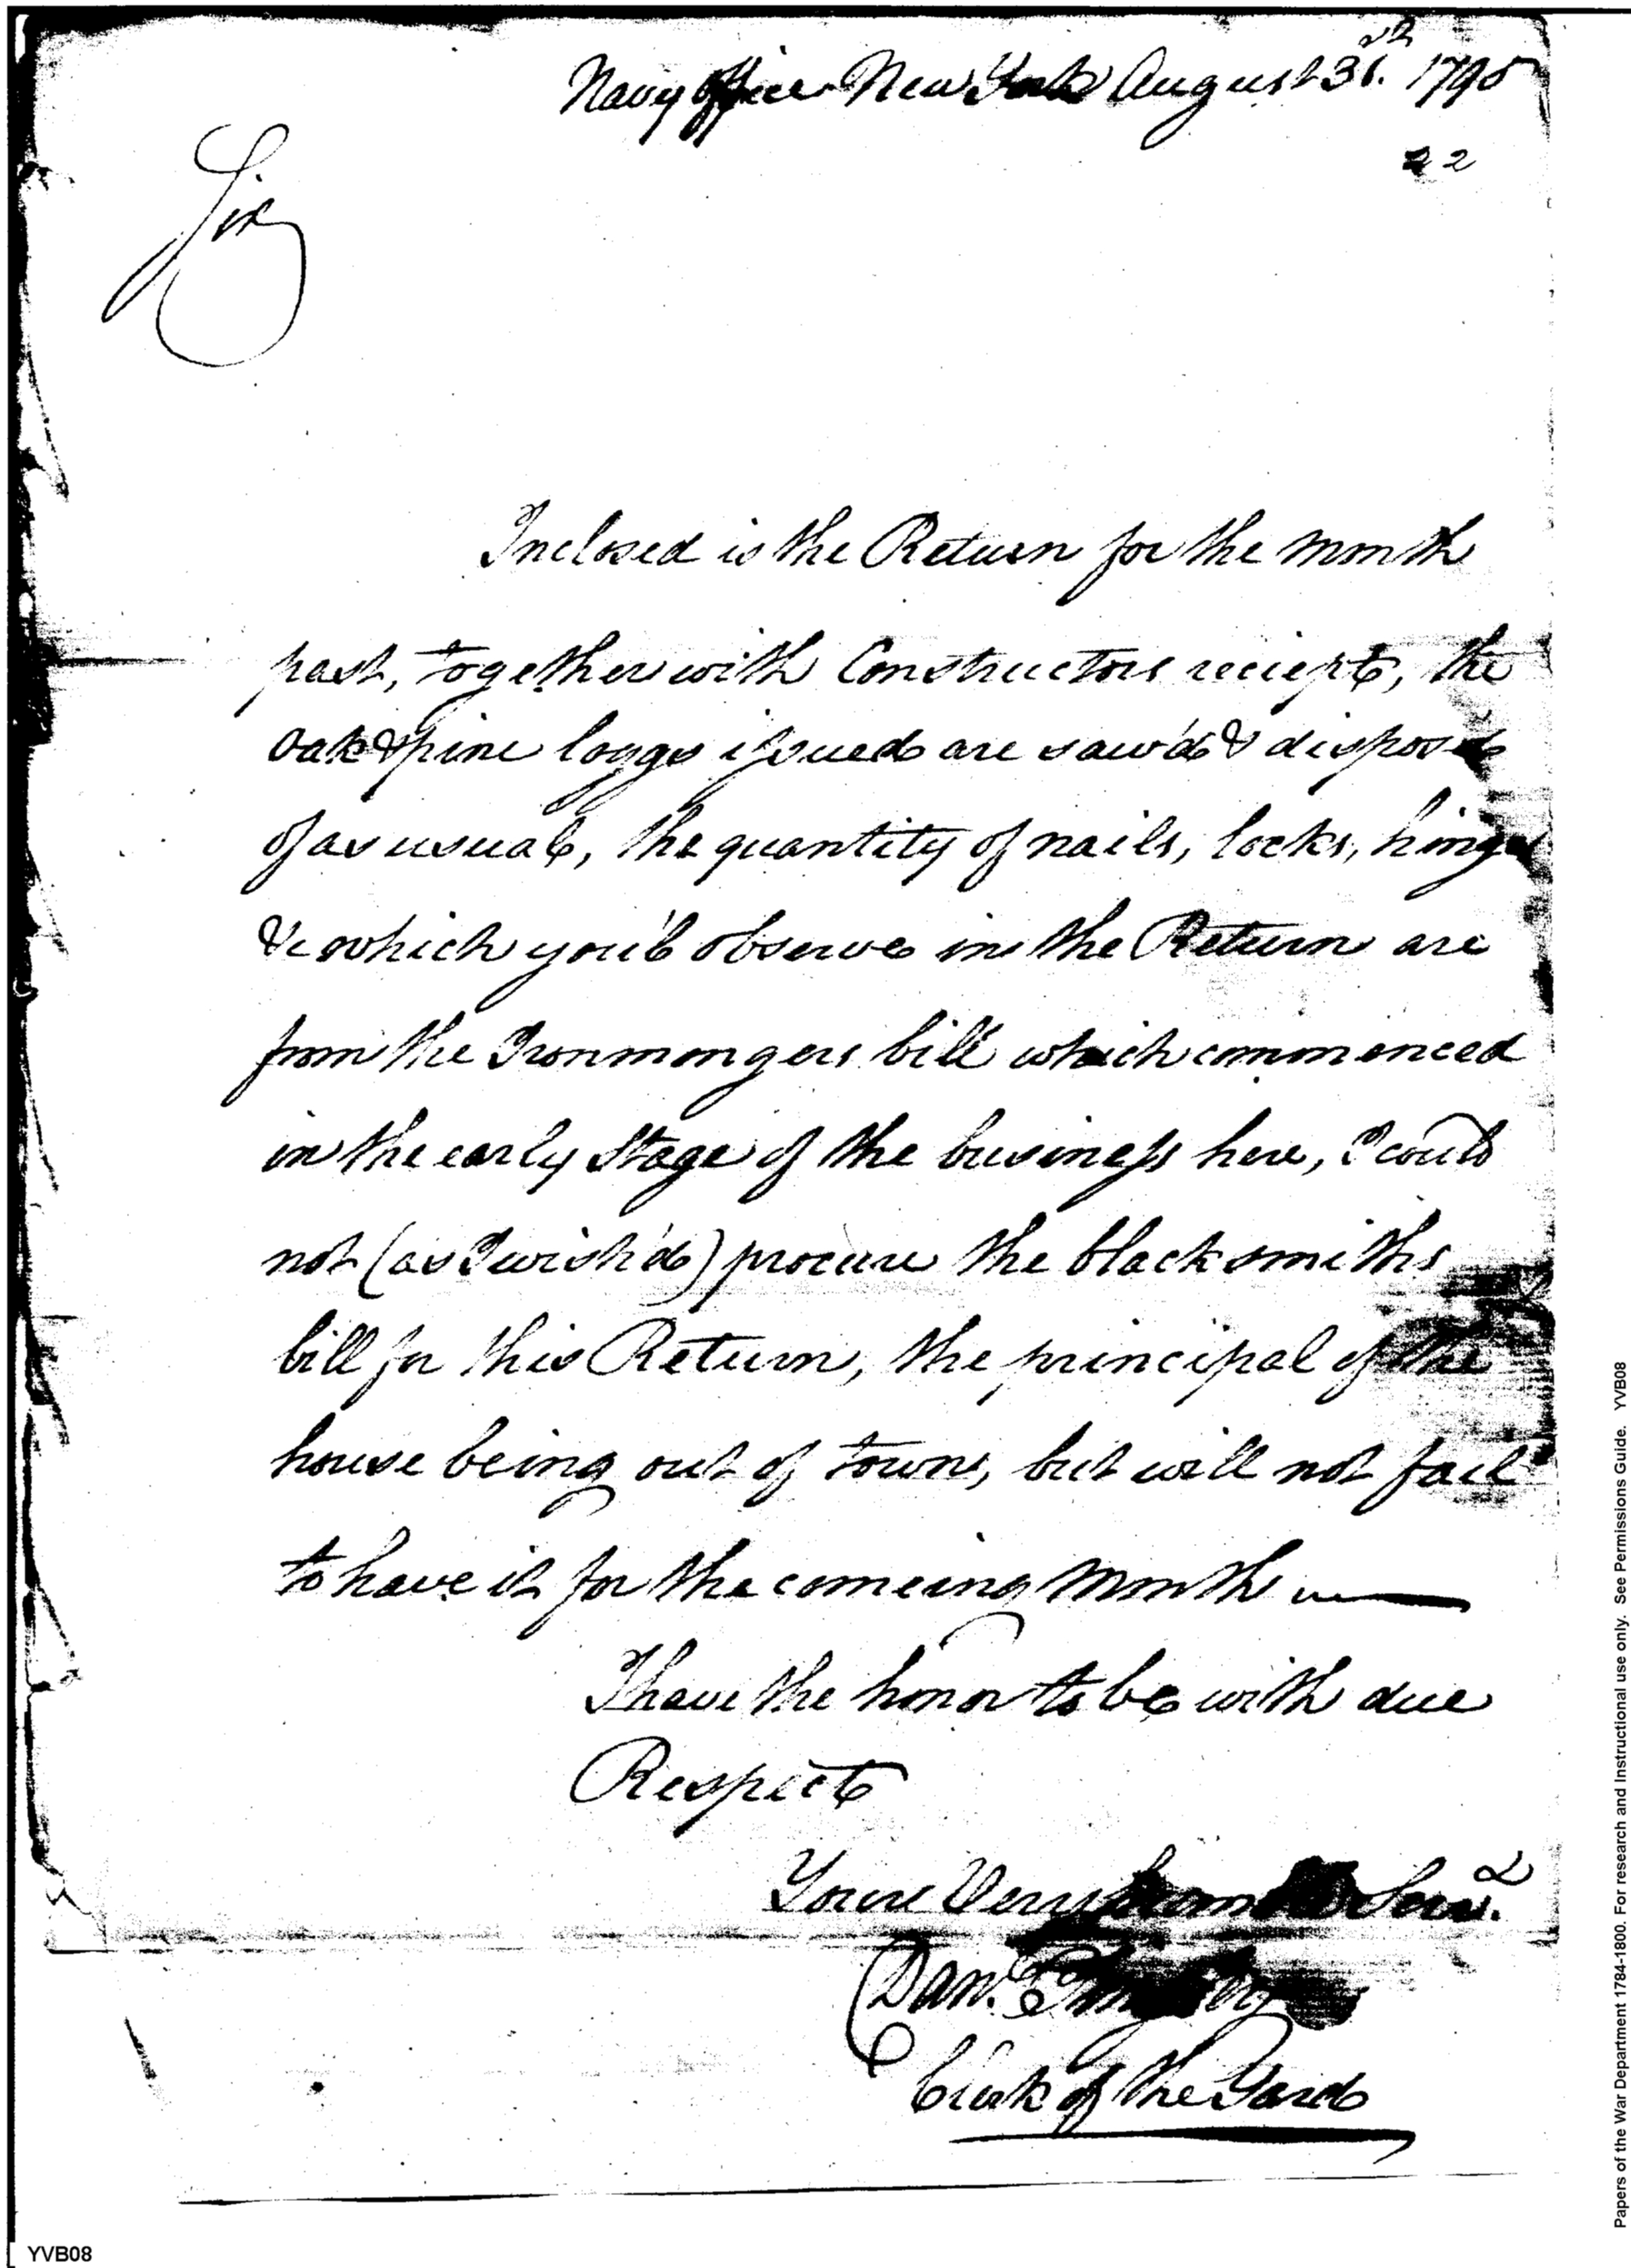 Navy Office New York August 31. 1795
22
Sir
Inclosed is the Return for the month
past, together with Constructors reciept, the
oak & pine loggs issued are saw'd & dispos'd
of as usual, the quantity of nails, locks, hinges
&c which you'l observe in the Return are
from the Ironmongers bill which commenced
in the early Stage of the business here, I could
not (as I wish'd) procure the blacksmiths
bill for this Return, the principal of the
house being out of town, but will not fail
to have it for the comeing month
I have the honor to be with due
Respect
Your Very humble Servt.
Danl.
Clerk of the Yard
Papers of the War Department 1784-1800. For research and Instructional use only. See Permissions Guide. YVB08
YVB08